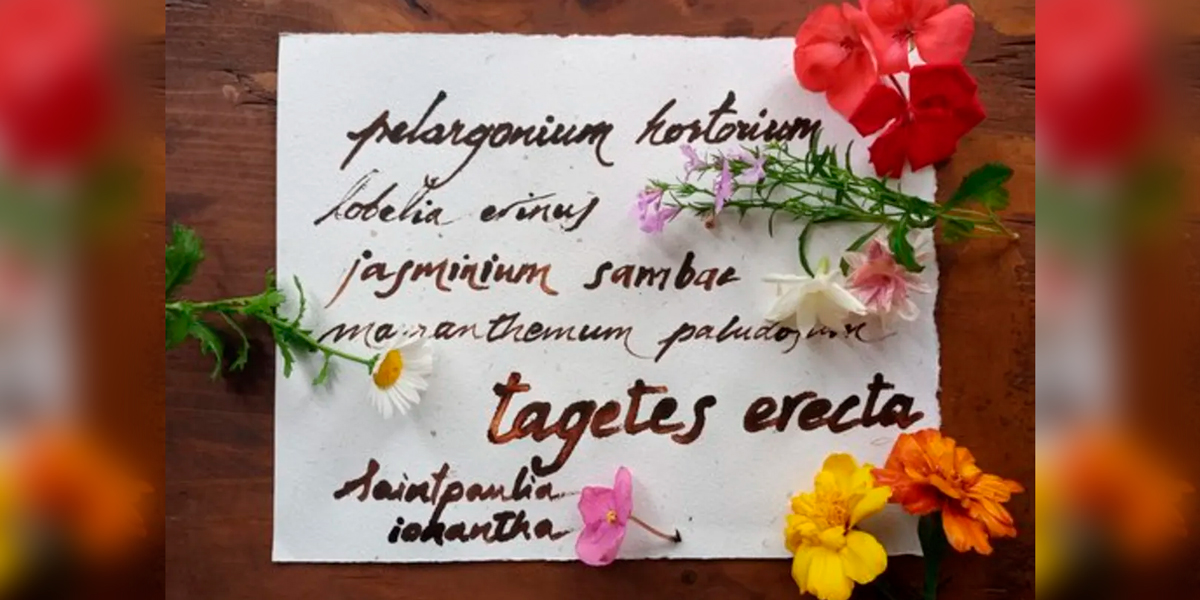 pelargonium hortorium
lobelia erinus
jasminium sambac
mauranthemum paludosum
tagetes erecta
saintpaulia
ionantha